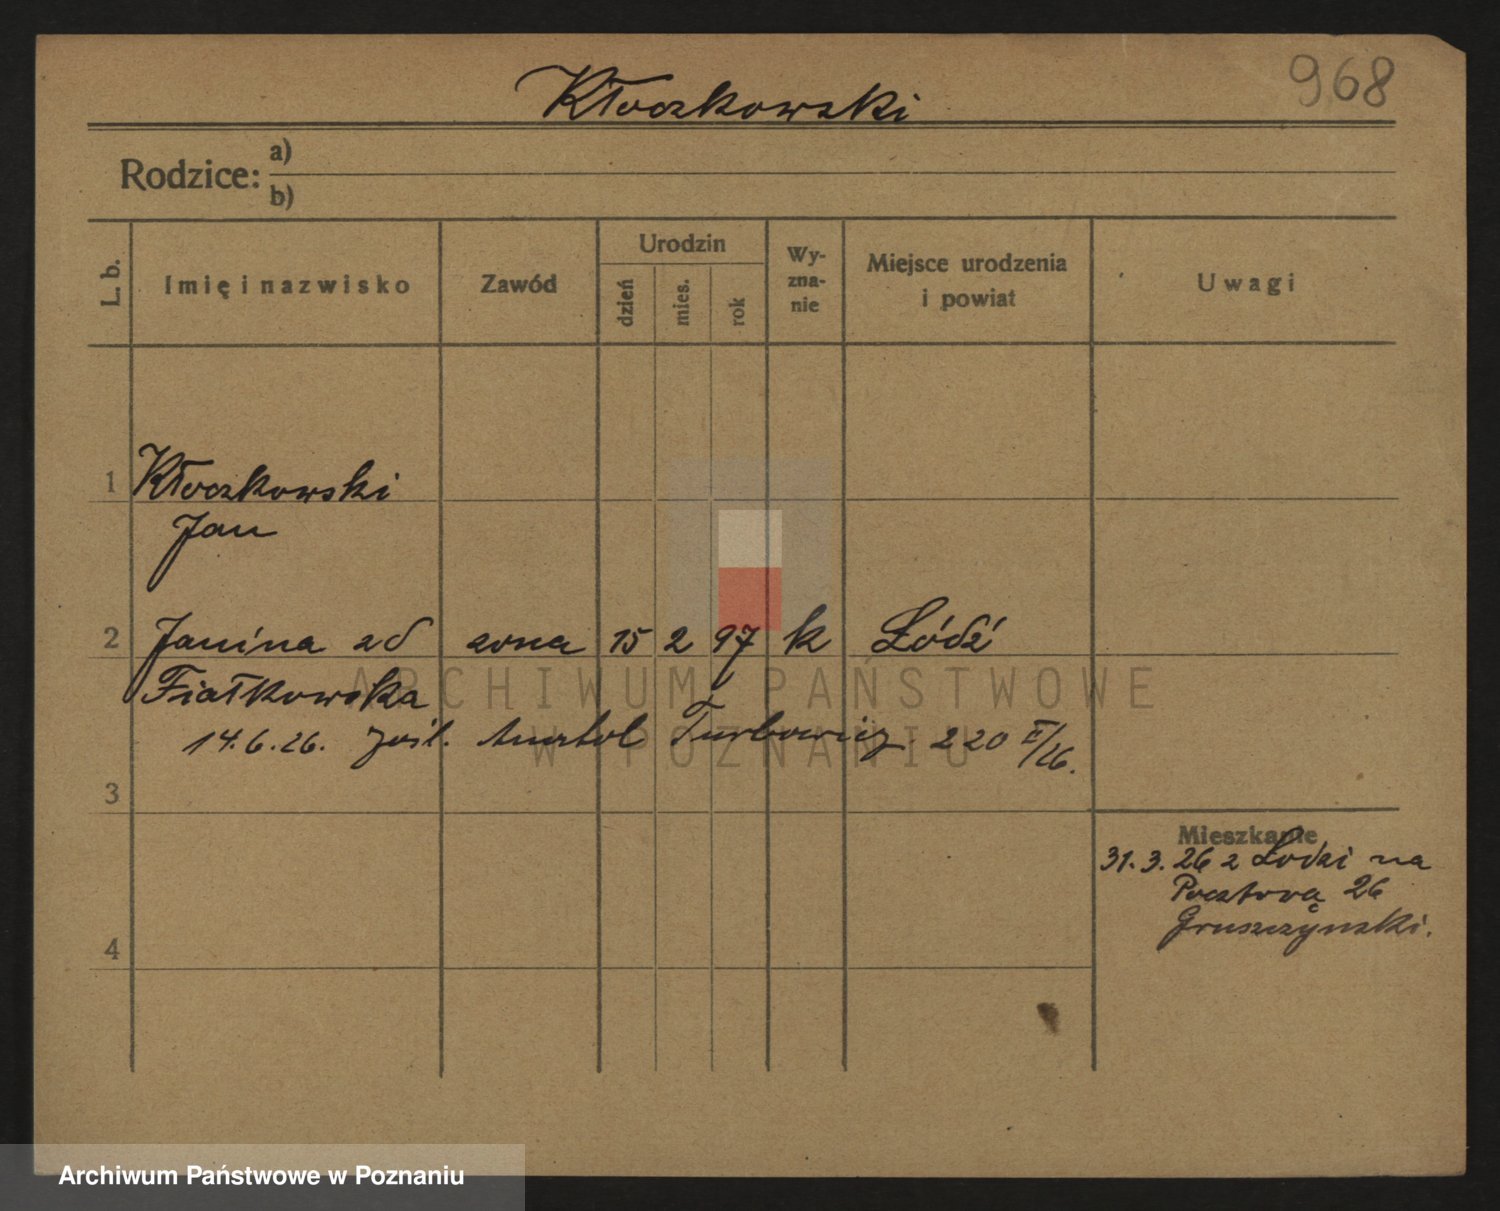 968
Kłoczkowski
Rodzice: a)
b)
L. b.
Imię i nazwisko
Zawód
Urodzin
dzień
mies.
rok
Wy-
zna-
nie
Miejsce urodzenia
i powiat
Uwagi
1 Kłoczkowski
Jan
2 Janina zd żona 15 2 97 k Łódź
Fiałkowska
14.6.26. Turbowicz 220 II/26.
3
Mieszkanie
31.3.26 z Łodzi na
Pocztową 26
Gruszczyński.
4
ARCHIWUM PAŃSTWOWE
W POZNANIU
Archiwum Państwowe w Poznaniu